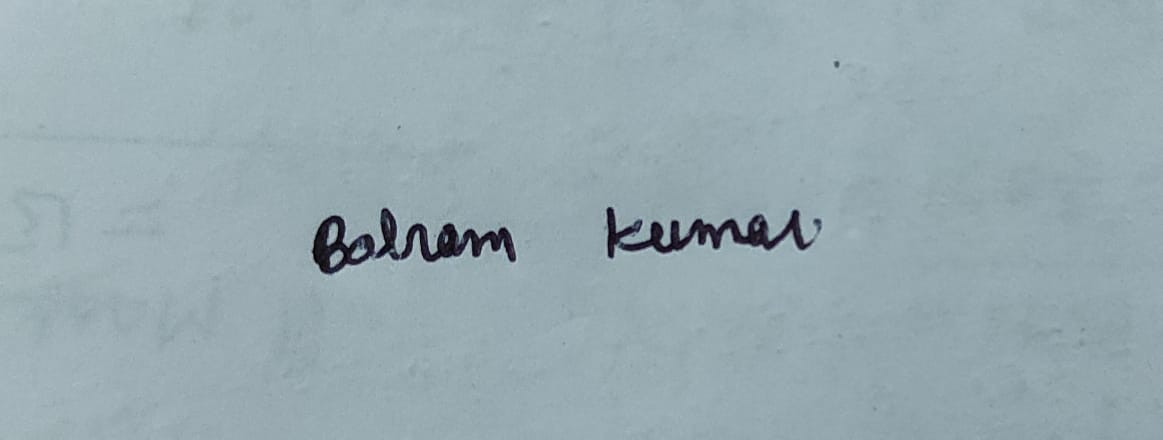 Balram Kumar